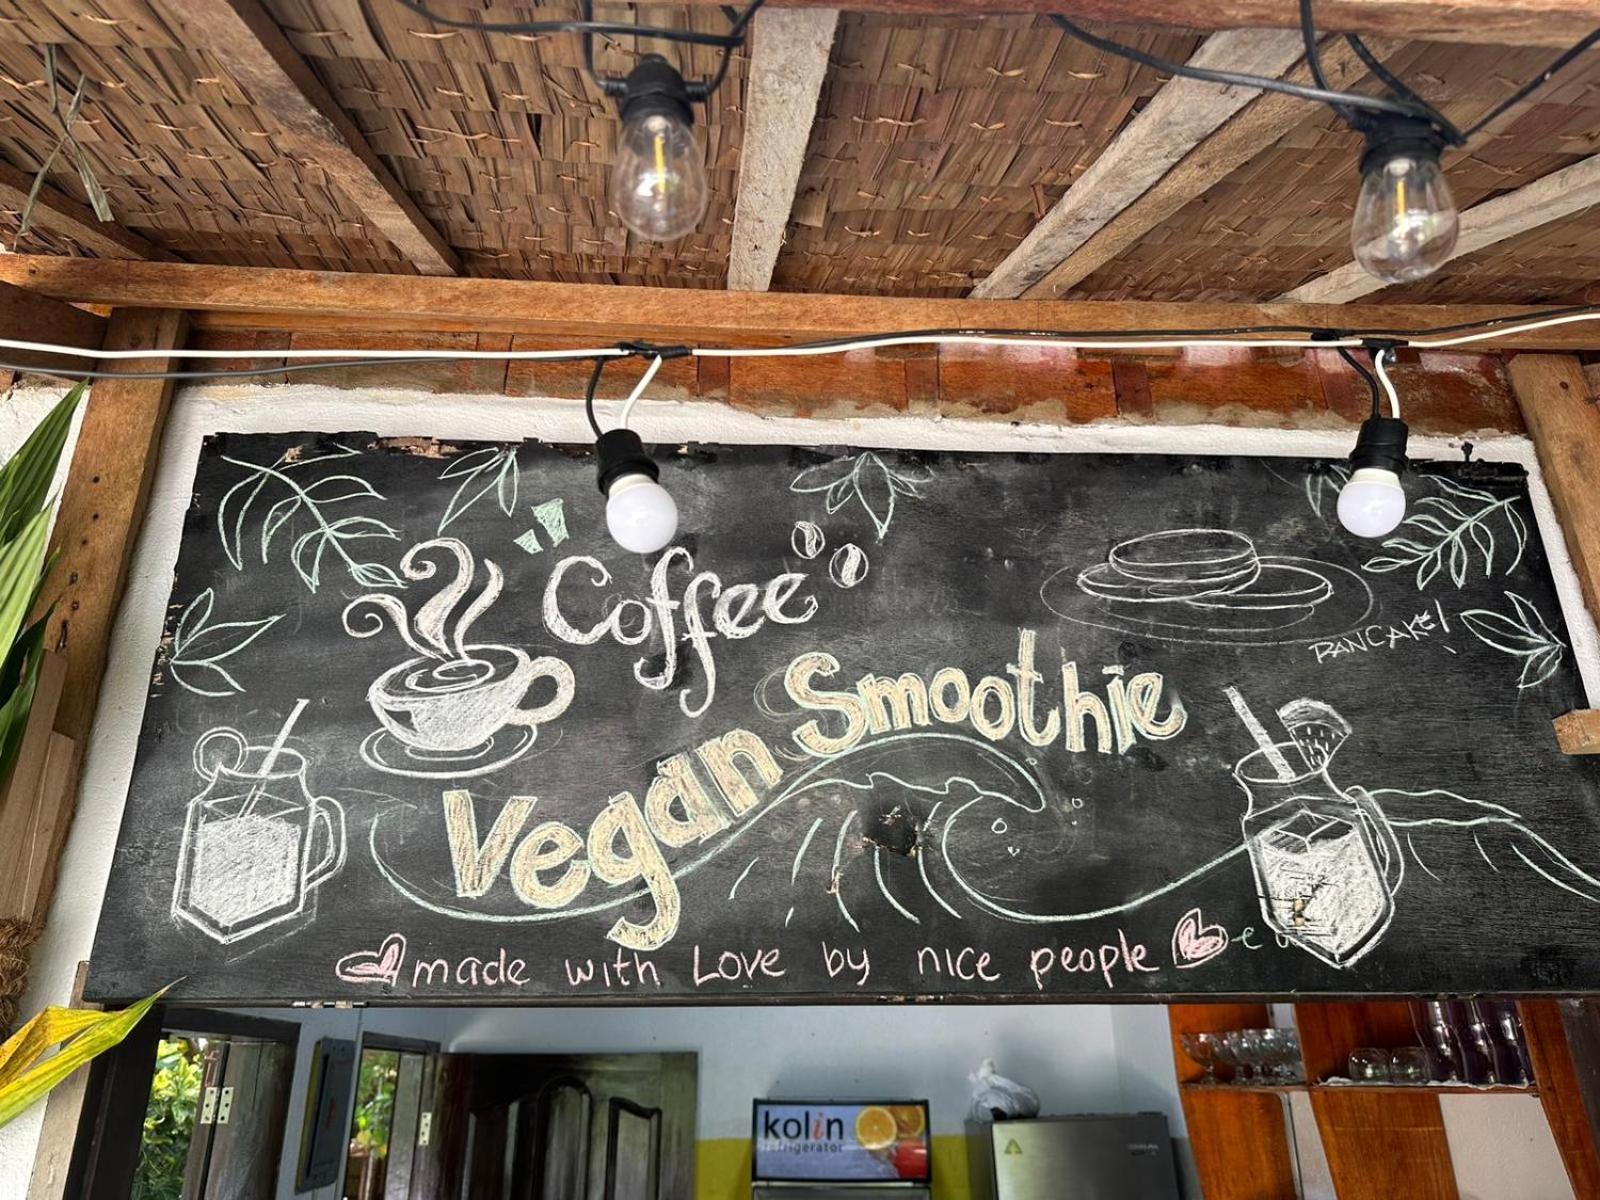 Coffee
PANCAKE!
Vegan Smoothie
made with Love by nice people
kolin
refrigerator